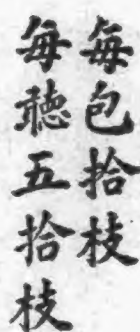 每包拾枝
每聽五拾枝